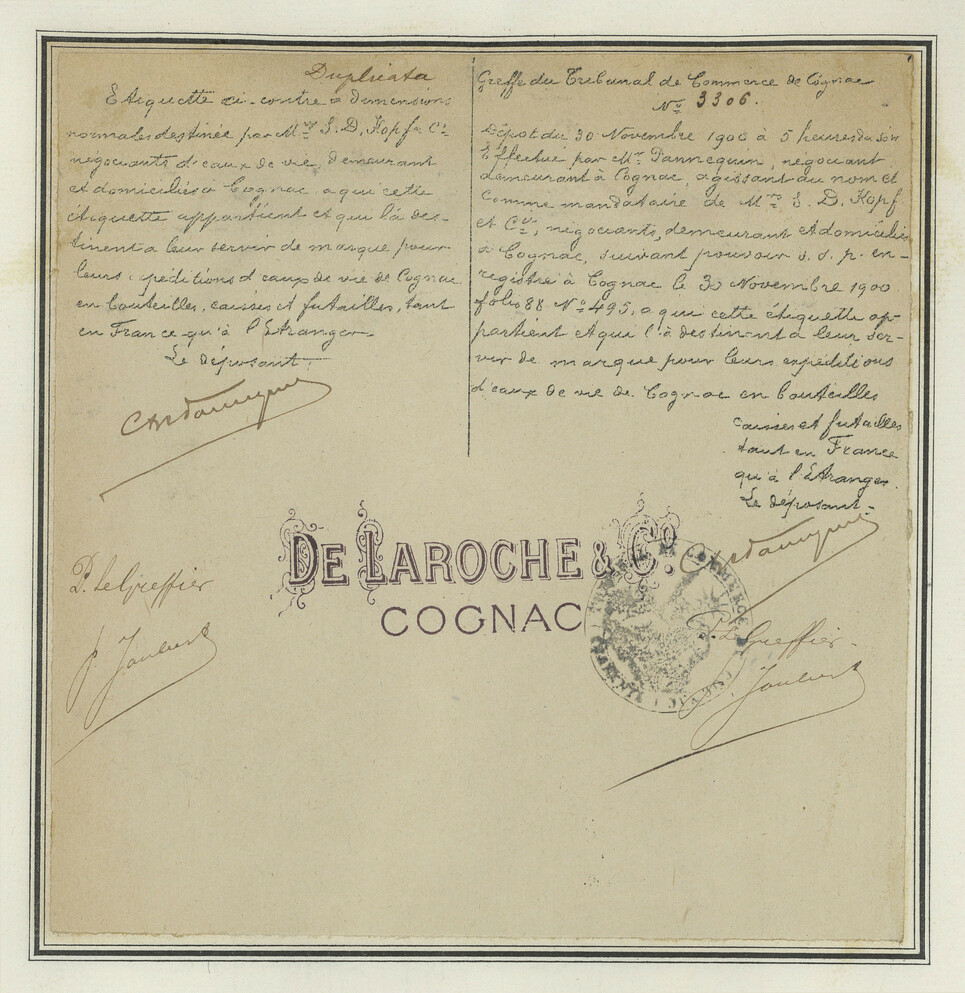 Duplicata
Etiquette ci-contre à dimensions
normales destinée par Mrs S. D. Kopf & Cie
négociants d'eaux de vie, demeurant
et domiciliés à Cognac, a qui cette
étiquette appartient et qui la des-
tinent a leur servir de marque pour
leurs expéditions d'eaux de vie de Cognac
en bouteilles, caisses et futailles, tant
en France qu'à l'Etranger
Le déposant
P. le Greffier
Greffe du Tribunal de Commerce de Cognac
No 3306.
Dépôt du 30 Novembre 1900 à 5 heures du soir
Effectué par Mr Dannequin, négociant
demeurant à Cognac, agissant au nom et
comme mandataire de Mrs S. D. Kopf
et Cie, négociants, demeurant et domiciliés
à Cognac, suivant pouvoir s. s. p. en-
registré à Cognac le 30 Novembre 1900
folio 88 No 495, a qui cette étiquette ap-
partient et qui l'à destinent à leur ser-
vir de marque pour leurs expéditions
d'eaux de vie de Cognac en bouteilles
caisses et futailles
tant en France
qu'à l'Etranger.
Le déposant
DE LAROCHE & Co.
COGNAC
P. le Greffier